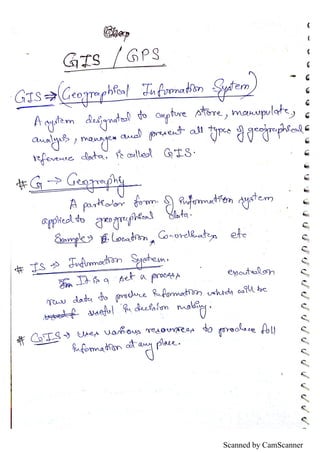 GIS / GPS
GIS ⇒ (Geographical Information System)
A system designated to capture store, manupulate,
analysis, manages and present all types of geographical
reference data. is called GIS.
# G → Geography
A particular form of Information system
applied to geographical data.
Example → Location, Co-ordinates etc
# IS → Information System.
It is a set a process
raw data to produce information which will be
useful in decision making.
# GIS → Uses various resources to produce full
information at any place.
Scanned by CamScanner